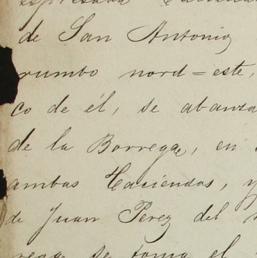 de San Antonio
rumbo nord=este,
co de él, se abanza
de la Borrega, en
ambas Haciendas, y
de Juan Perez del
se toma el